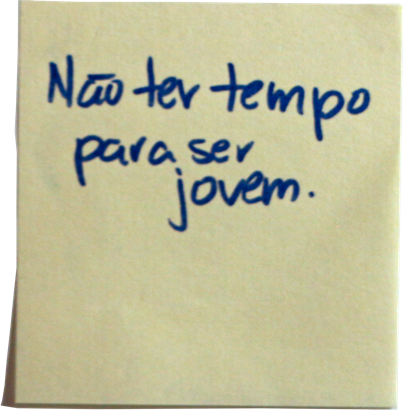 Não ter tempo
para ser
jovem.